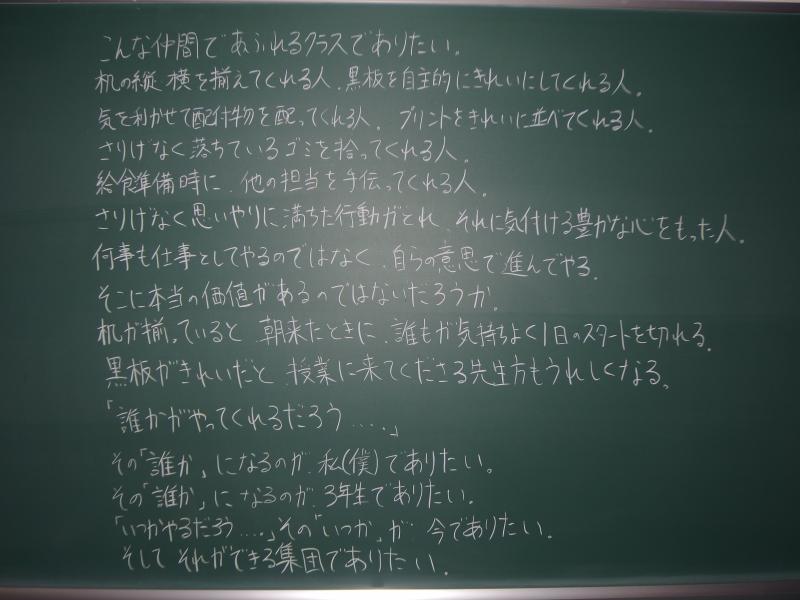 こんな仲間であふれるクラスでありたい。
机の縦、横を揃えてくれる人、黒板を自主的にきれいにしてくれる人、
気を利かせて配付物を配ってくれる人、プリントをきれいに並べてくれる人、
さりげなく落ちているゴミを拾ってくれる人、
給食準備時に、他の担当を手伝ってくれる人、
さりげなく思いやりに満ちた行動がとれ、それに気付ける豊かな心をもった人。
何事も仕事としてやるのではなく、自らの意思で進んでやる。
そこに本当の価値があるのではないだろうか。
机が揃っていると、朝来たときに、誰もが気持ちよく1日のスタートを切れる。
黒板がきれいだと、授業に来てくださる先生方もうれしくなる。
「誰かがやってくれるだろう・・・・・」
その「誰か」になるのが、私(僕)でありたい。
その「誰か」になるのが、3年生でありたい。
「いつかやるだろう・・・・・」その「いつか」が、今でありたい。
そして それができる集団でありたい。